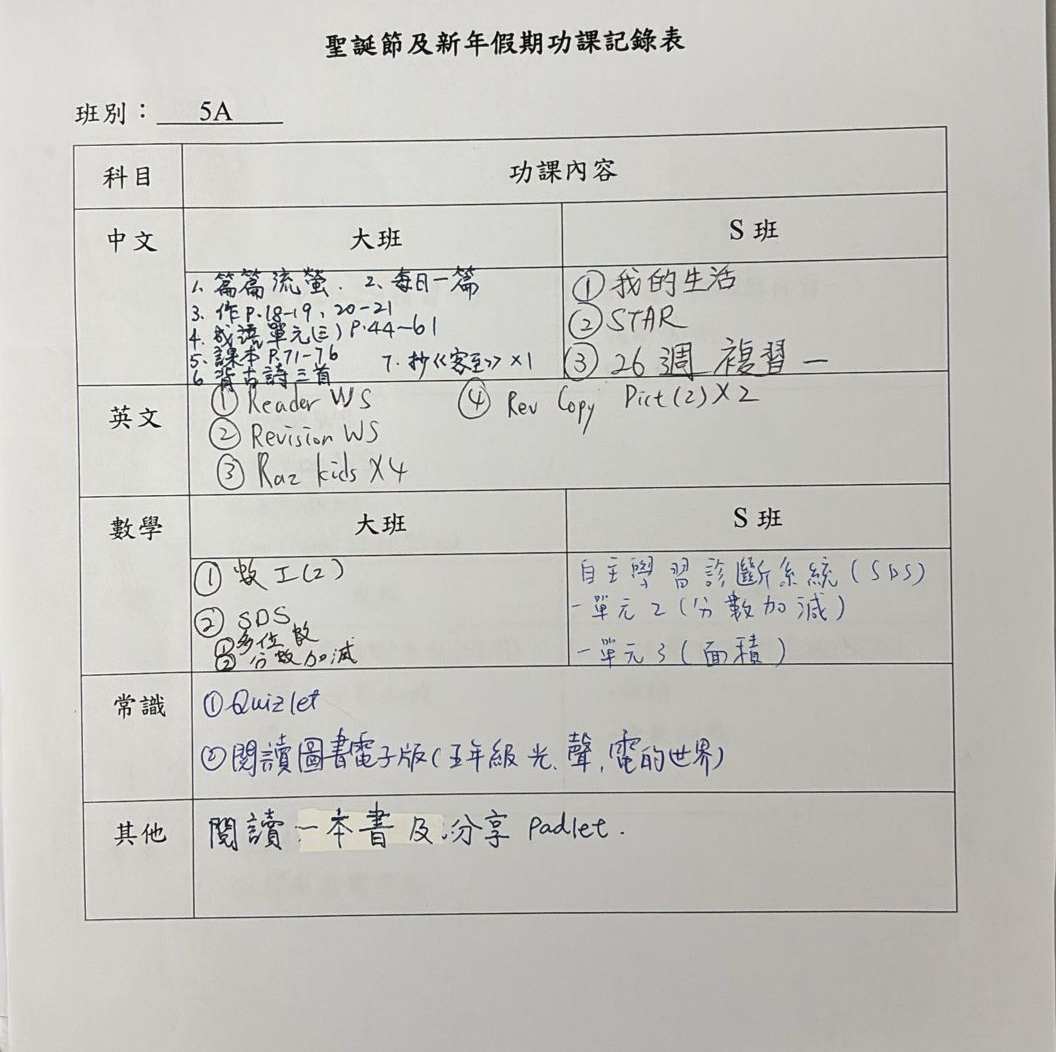 聖誕節及新年假期功課記錄表
班別： 5A
科目 功課內容
中文 大班 S 班
1. 篇篇流螢. 2、每日一篇
3. 作 P.18-19, 20-21
4. 成語單元(三) P.44-61
5. 課本 P.71-76 7. 抄《客至》×1
6 背古詩三首
① 我的生活
② STAR
③ 26 週 複習一
英文
① Reader WS ④ Rev Copy Pict(2)×2
② Revision WS
③ Raz kids ×4
數學 大班 S 班
① 数工(2)
② SDS
① 多位数
② 分数加減
自主學習診斷系統(SDS)
-單元 2 (分數加減)
-單元 3 (面積)
常識
① Quizlet
② 閱讀圖書電子版(五年級 光、聲、電的世界)
其他
閱讀一本書及分享 Padlet.